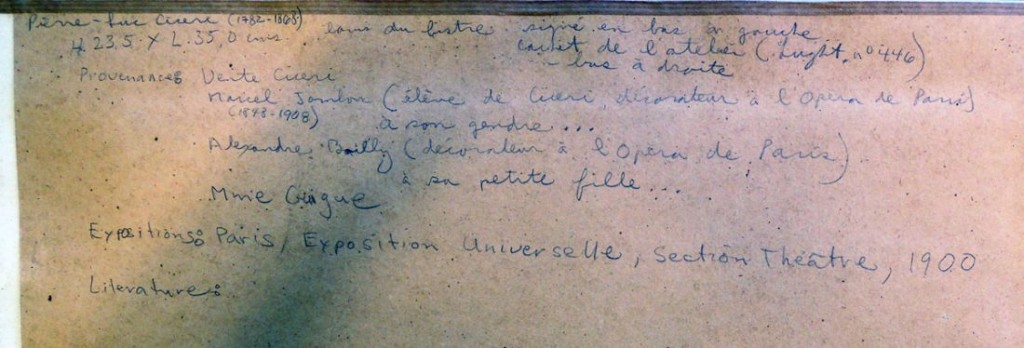 Pierre-Luc Ciceri (1782-1868) lavis du bistre signé en bas à gauche
H. 23,5 X L. 35,0 cms. cachet de l'atelier (Lught, n° 446)
- bas à droite
Provenances Vente Ciceri
Marcel Jambon (élève de Ciceri, décorateur à l'Opera de Paris)
(1848-1908) à son gendre...
Alexandre Bailly (décorateur à l'Opera de Paris)
à sa petite fille...
Mme
Expositions: Paris, Exposition Universelle, Section Théâtre, 1900
Literature: